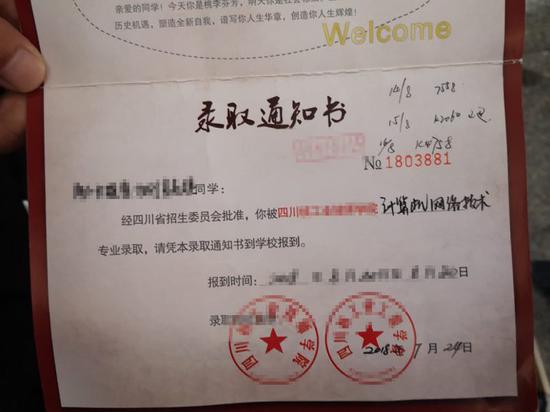 亲爱的同学！今天你是桃李芬芳，明天你是社会
历史机遇，塑造全新自我，谱写你人生华章，创造你人生辉煌！
Welcome
14/8 7558
录取通知书
15/8 K1060
16/8 K4758
No 1803881
同学：
经四川省招生委员会批准，你被四川 学院 计算机网络技术
专业录取，请凭本录取通知书到学校报到。
报到时间： 日
录取
四川 学院
四川 学院
2018年 7 月 24日